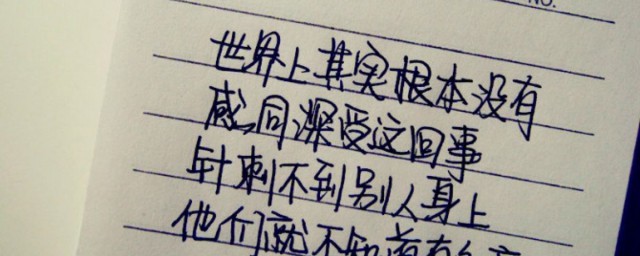 NO.
世界上其实根本没有
感同深受这回事
针刺不到别人身上
他们就不知道有